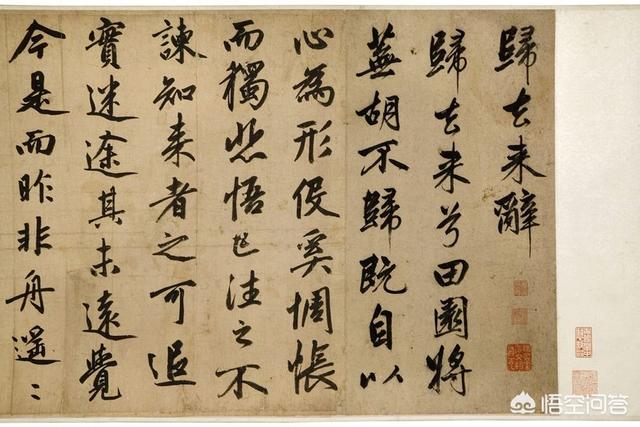 歸去来辭
歸去来兮田園將
蕪胡不歸既自以
心為形役奚惆悵
而獨悲悟已往之不
諫知来者之可追
實迷途其未遠覺
今是而昨非舟遥〻
悟空问答